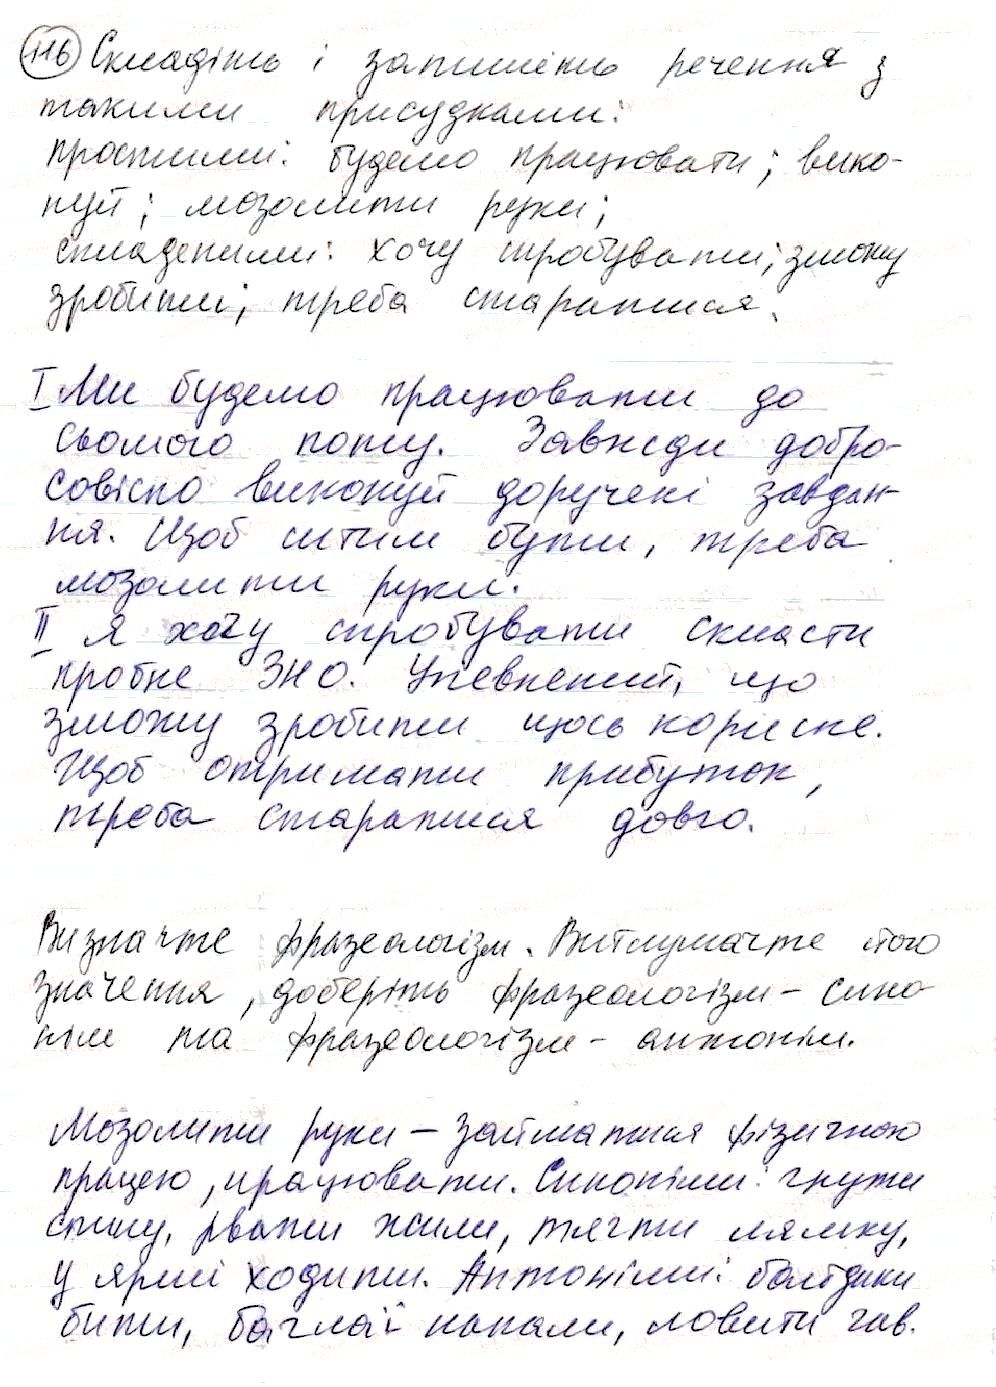 116 Складіть і запишіть речення з
такими присудками:
простими: будемо працювати; вико-
нуй; мозолити руки;
складеними: хочу спробувати; зможу
зробити; треба старатися.
I Ми будемо працювати до
сьомого поту. Завжди добро-
совісно виконуй доручені завдан-
ня. Щоб ситим бути, треба
мозолити руки.
II Я хочу спробувати скласти
пробне ЗНО. Упевнений, що
зможу зробити щось корисне.
Щоб отримати прибуток,
треба старатися довго.
Визначте фразеологізм. Витлумачте його
значення, доберіть фразеологізм - сино-
нім та фразеологізм - антонім.
Мозолити руки – займатися фізичною
працею, працювати. Синоніми: гнути
спину, рвати жили, тягти лямку,
у ярмі ходити. Антоніми: байдики
бити, баглаї напали, ловити гав.